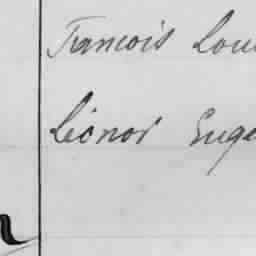 Francois Lou
Léonor Euge